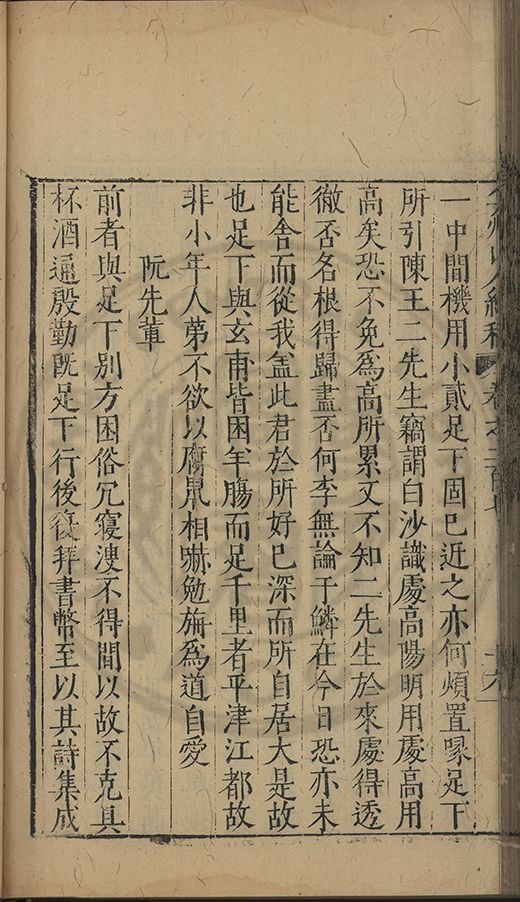 一中間機用小貳足下固已近之亦何煩置喙足下
所引陳王二先生竊謂白沙識處高陽明用處高用
高矣恐不免爲高所累又不知二先生於來處得透
徹否名根得歸盡否何李無論于鱗在今日恐亦未
能舍而從我盖此君於所好已深而所自居大是故
也足下與玄甫皆困羊腸而足千里者平津江都故
非小年人第不欲以腐鼠相嚇勉旃爲道自愛
阮先軰
前者與足下別方困俗冗寢溲不得間以故不克具
杯酒通殷勤旣足下行後復拜書幣至以其詩集成